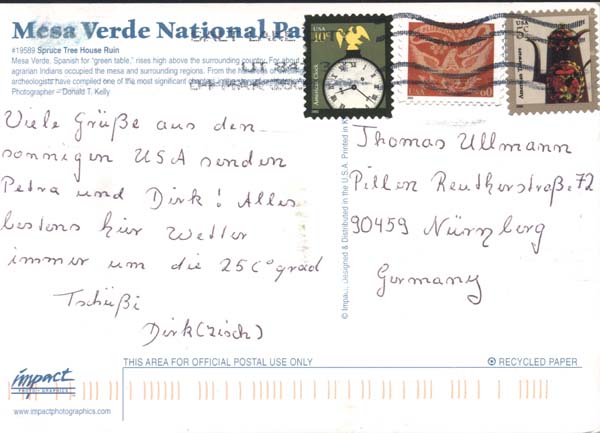 Mesa Verde National Pa
#19589 Spruce Tree House Ruin
Mesa Verde, Spanish for "green table," rises high above the surrounding country. For about
agrarian Indians occupied the mesa and surrounding regions. From the
archeologists have compiled one of the most significant
Photographer – Donald T. Kelly
SALT LAKE
UT 841
USA 10¢
American Clock
60
USA 5¢
American Toleware
Viele Grüße aus den
sonnigen USA senden
Petra und Dirk! Alles
bestens hier Wetter
immer um die 25C° grad
Tschüßi
Dirk (Zisch)
© Impact, Designed & Distributed in the U.S.A. Printed in
Thomas Ullmann
Pillen Reutherstraße 72
90459 Nürnberg
Germany
THIS AREA FOR OFFICIAL POSTAL USE ONLY
RECYCLED PAPER
impact
PHOTO GRAPHICS
www.impactphotographics.com